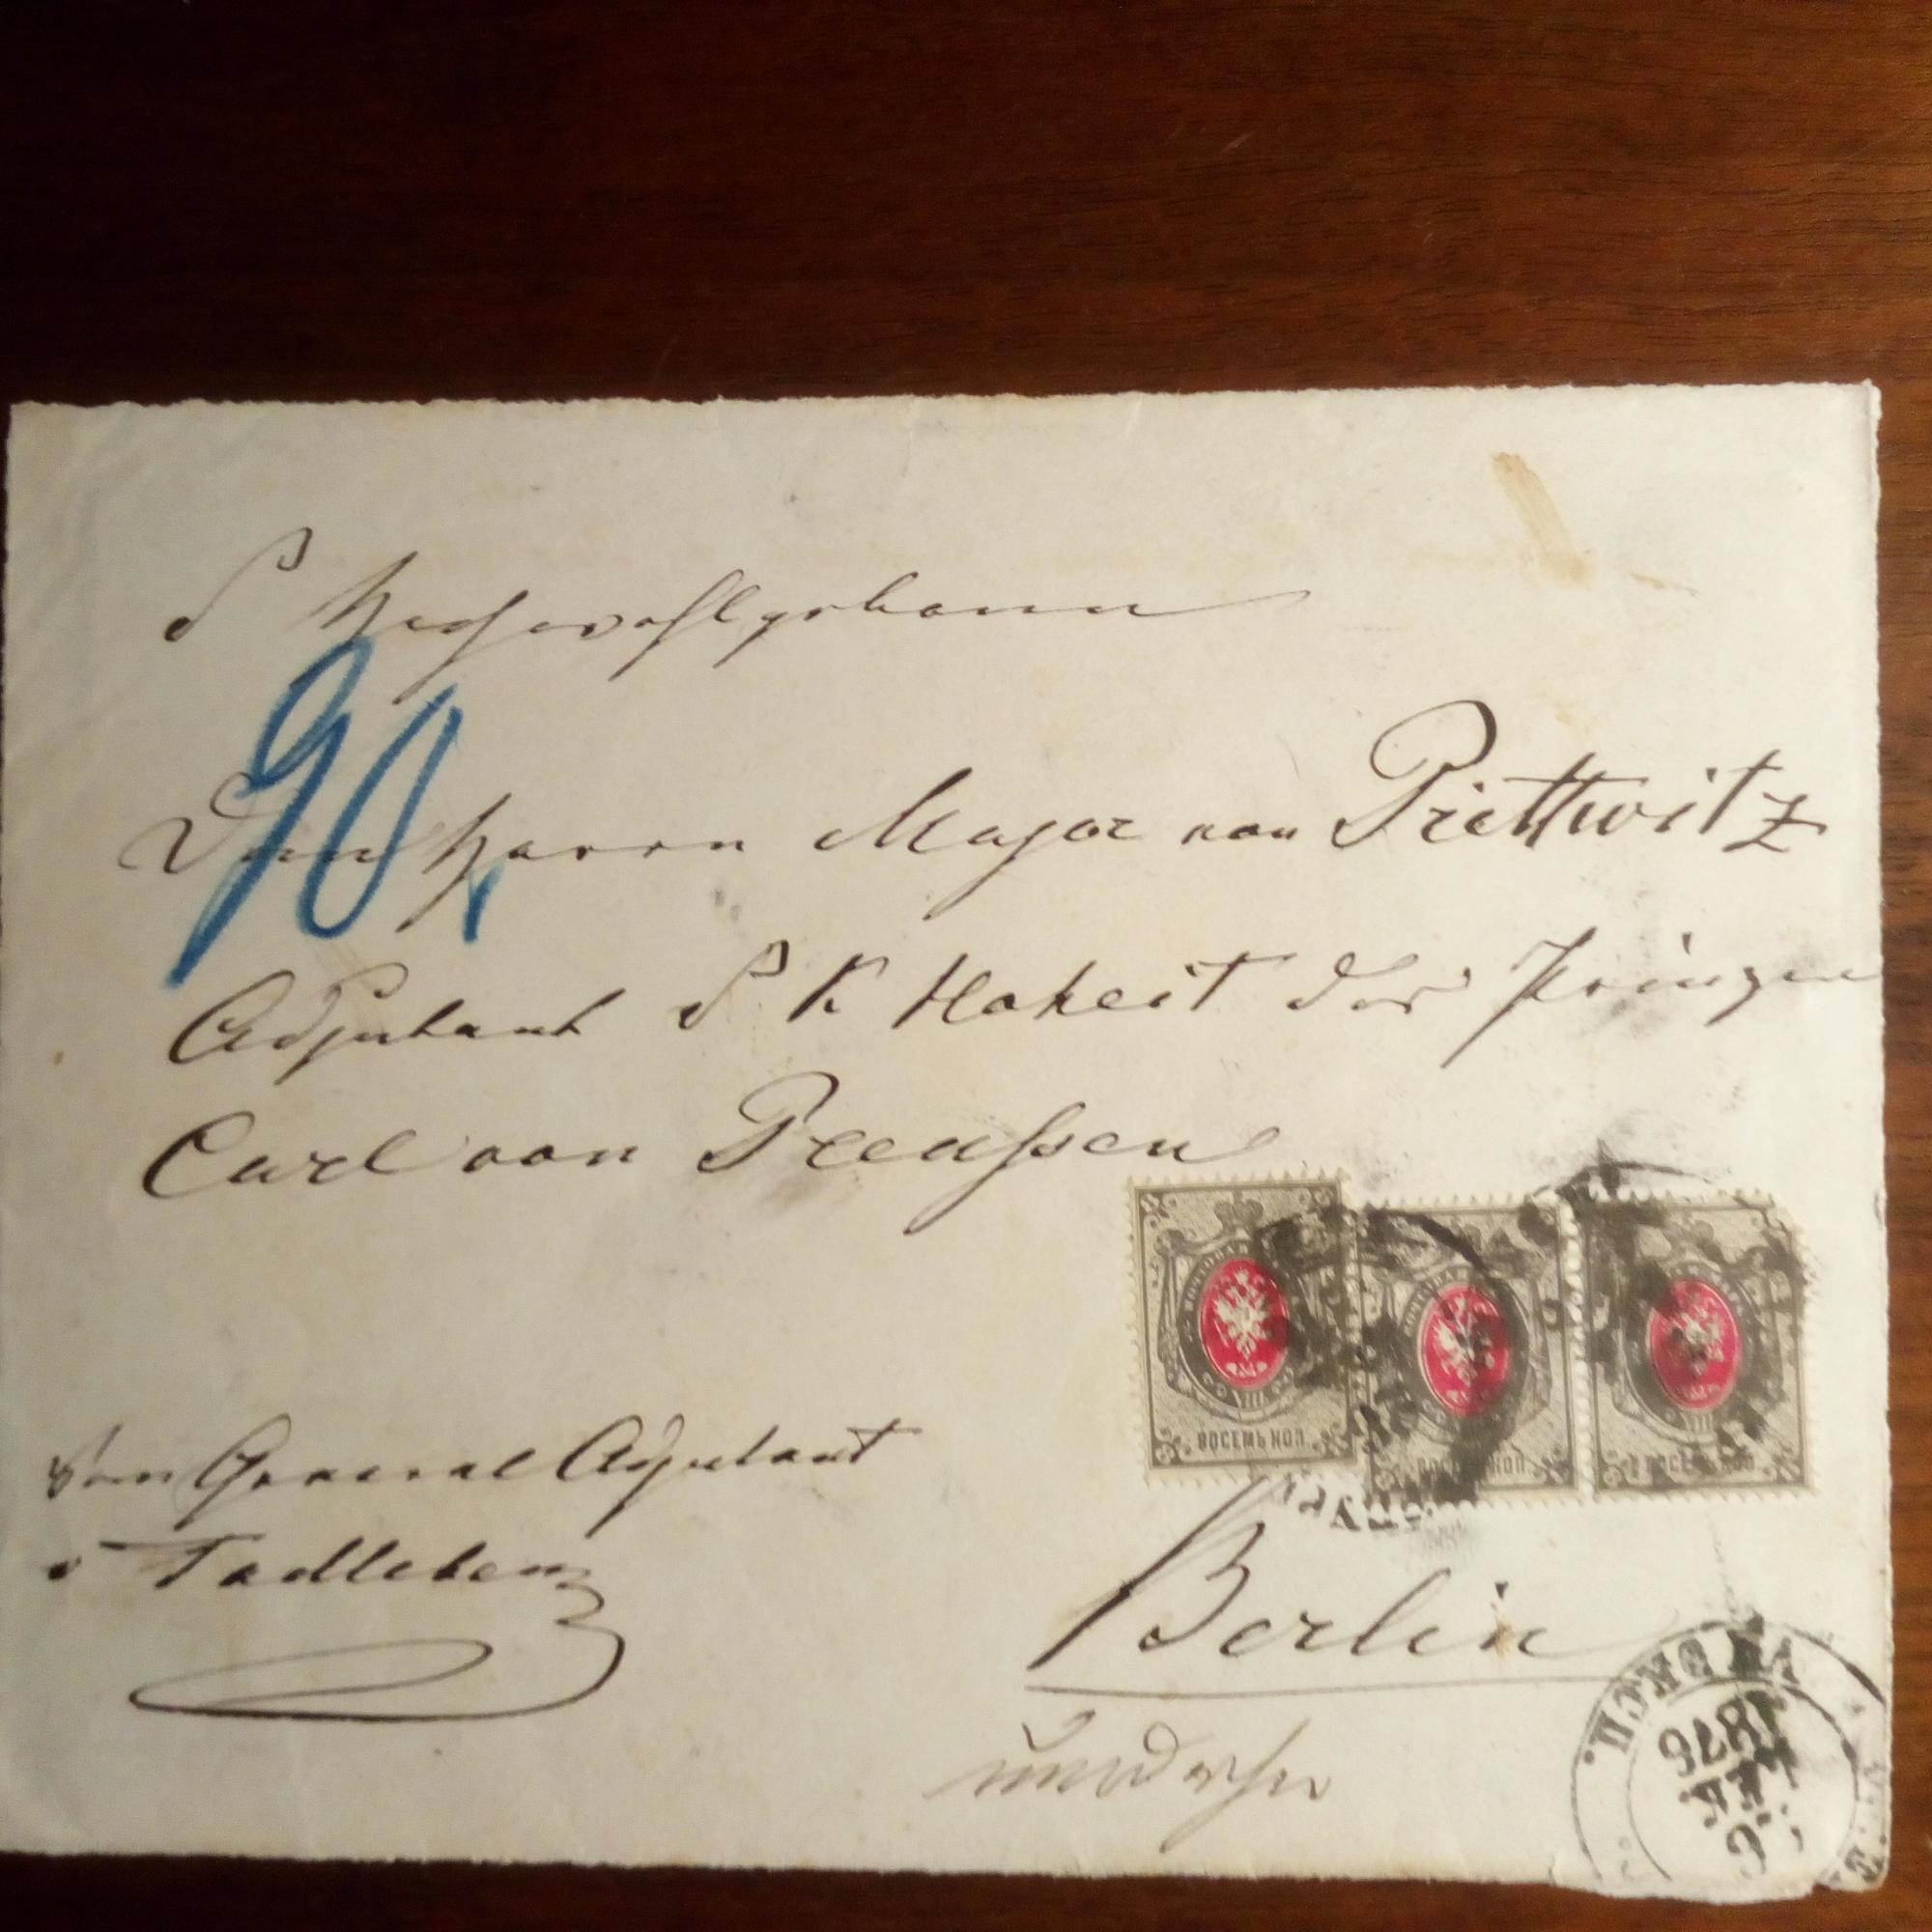 S Hochwohlgeboren
90
Dem Herrn Major von Prittwitz
Adjutant S. K Hoheit des Prinzen
Carl von Preußen
ВОСЕМЬ КОП.
ВОСЕМЬ КОП.
ВОСЕМЬ КОП.
Vom General Adjutant
v Todleben
Berlin
1876